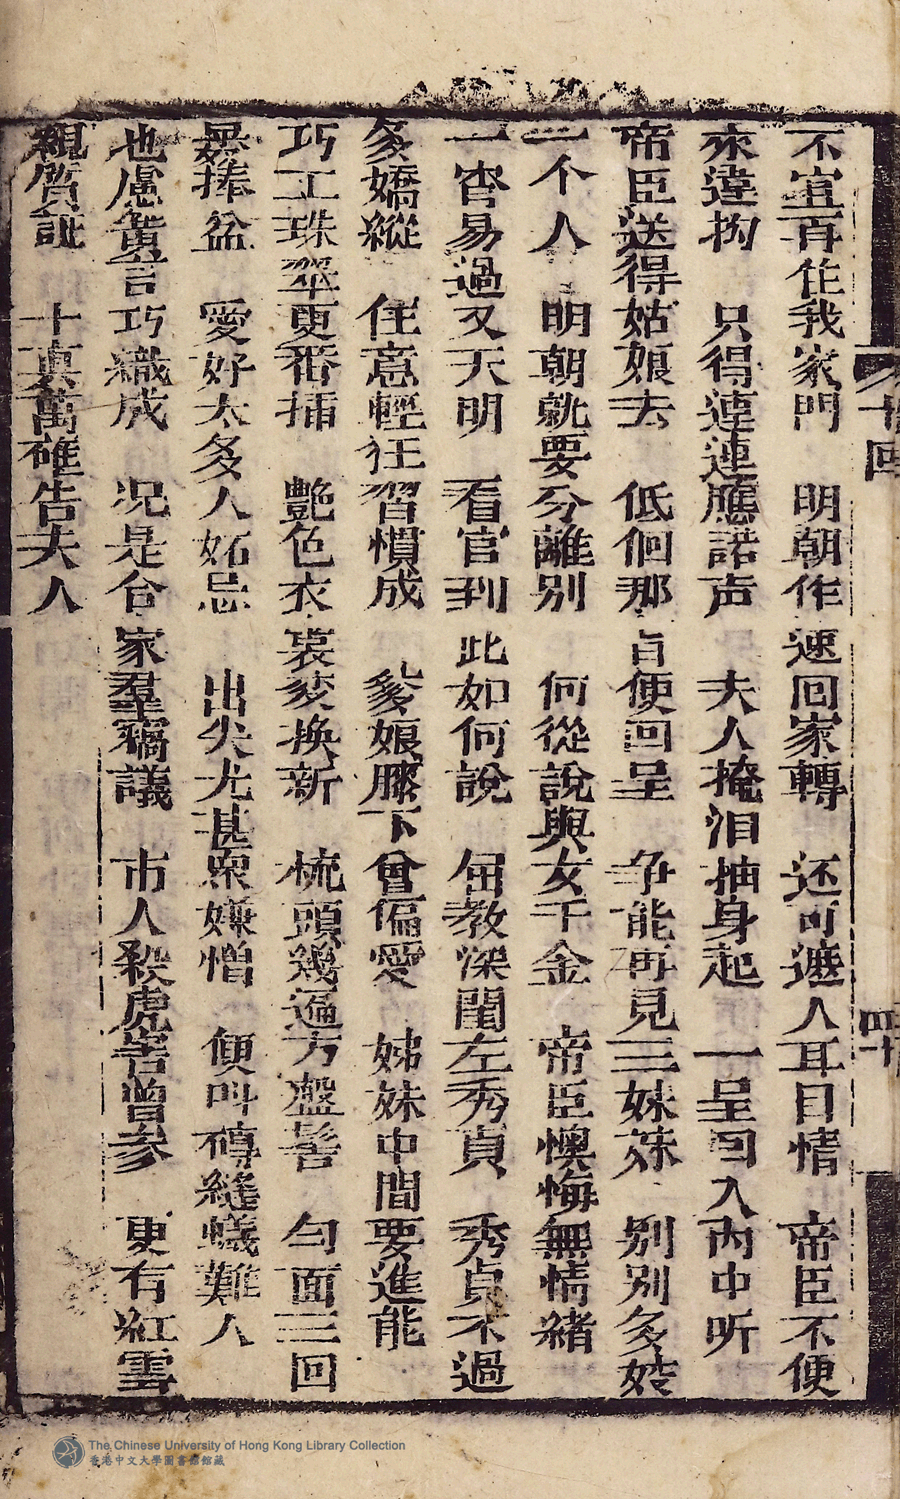 不宜再住我家門　明朝作速回家轉　还可遮人耳目情　帝臣不便
來違拘　只得連連應諾声　夫人掩泪抽身起　一呈回入內中听
帝臣送得姑娘去　低佪那肯便回呈　争能再見三妹妹　别别多姣
一个人　明朝就要分離别　何從說與女千金　帝臣懊悔無情緒
一宵易過又天明　看官到此如何說　届教深閨左秀貞　秀貞不過
多嬌縱　住意輕狂習慣成　爹娘膝下曾偏愛　姊妹中間要進能
巧工珠翠更番插　艷色衣裳変換新　梳頭幾遍方盤髻　勻面三回
暴捧盆　愛好太多人妬忌　出尖尤甚衆嫌憎　便叫磚縫蟻難人
地慮黄言巧織成　况是合家羣竊議　市人殺虎害曾參　更有紅雲
親質証　十真萬確告夫人
十回
四十
The Chinese University of Hong Kong Library Collection
香港中文大學圖書館館藏